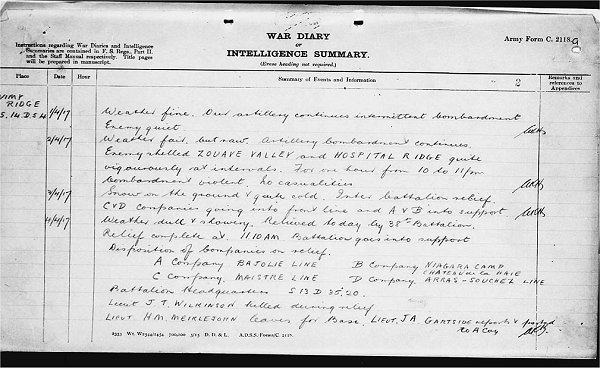 Army Form C. 2118.
WAR DIARY
or
INTELLIGENCE SUMMARY.
(Erase heading not required.)
Instructions regarding War Diaries and Intelligence
Summaries are contained in F. S. Regs., Part II.
and the Staff Manual respectively. Title pages
will be prepared in manuscript.
Place Date Hour Summary of Events and Information 2 Remarks and
references to
Appendices
VIMY
RIDGE
S.14.D.5.4 1/4/17 Weather fine. Our artillery continues intermittent bombardment
Enemy quiet.
2/4/17 Weather fair, but raw. Artillery bombardment continues.
Enemy shelled ZOUAVE VALLEY and HOSPITAL RIDGE quite
vigourously at intervals. For one hour from 10 to 11 pm
bombardment violent. no casualities
3/4/17 Snow on the ground & quite cold. Inter battalion relief.
C & D companies going into front line and A & B into support
4/4/17 Weather dull & showery. Relieved today by 38th Battalion.
Relief complete at 11 10 AM Battalion goes into support
Disposition of Companies on relief.
A Company BAJOLLE LINE B Company NIAGARA CAMP
CHATEAU de la HAIE
C Company MAISTRE LINE D Company ARRAS-SOUCHEZ LINE
Battalion Headquarters S 13 D 35.20.
Lieut J.T. WILKINSON killed during relief
LIEUT H.M. MEIKLEJOHN leaves for Base. LIEUT. JA GARTSIDE reports & posted
to A Coy
2353 Wt. W2544/1454 700,000 5/15 D. D. & L. A.D.S.S./Forms/C. 2118.